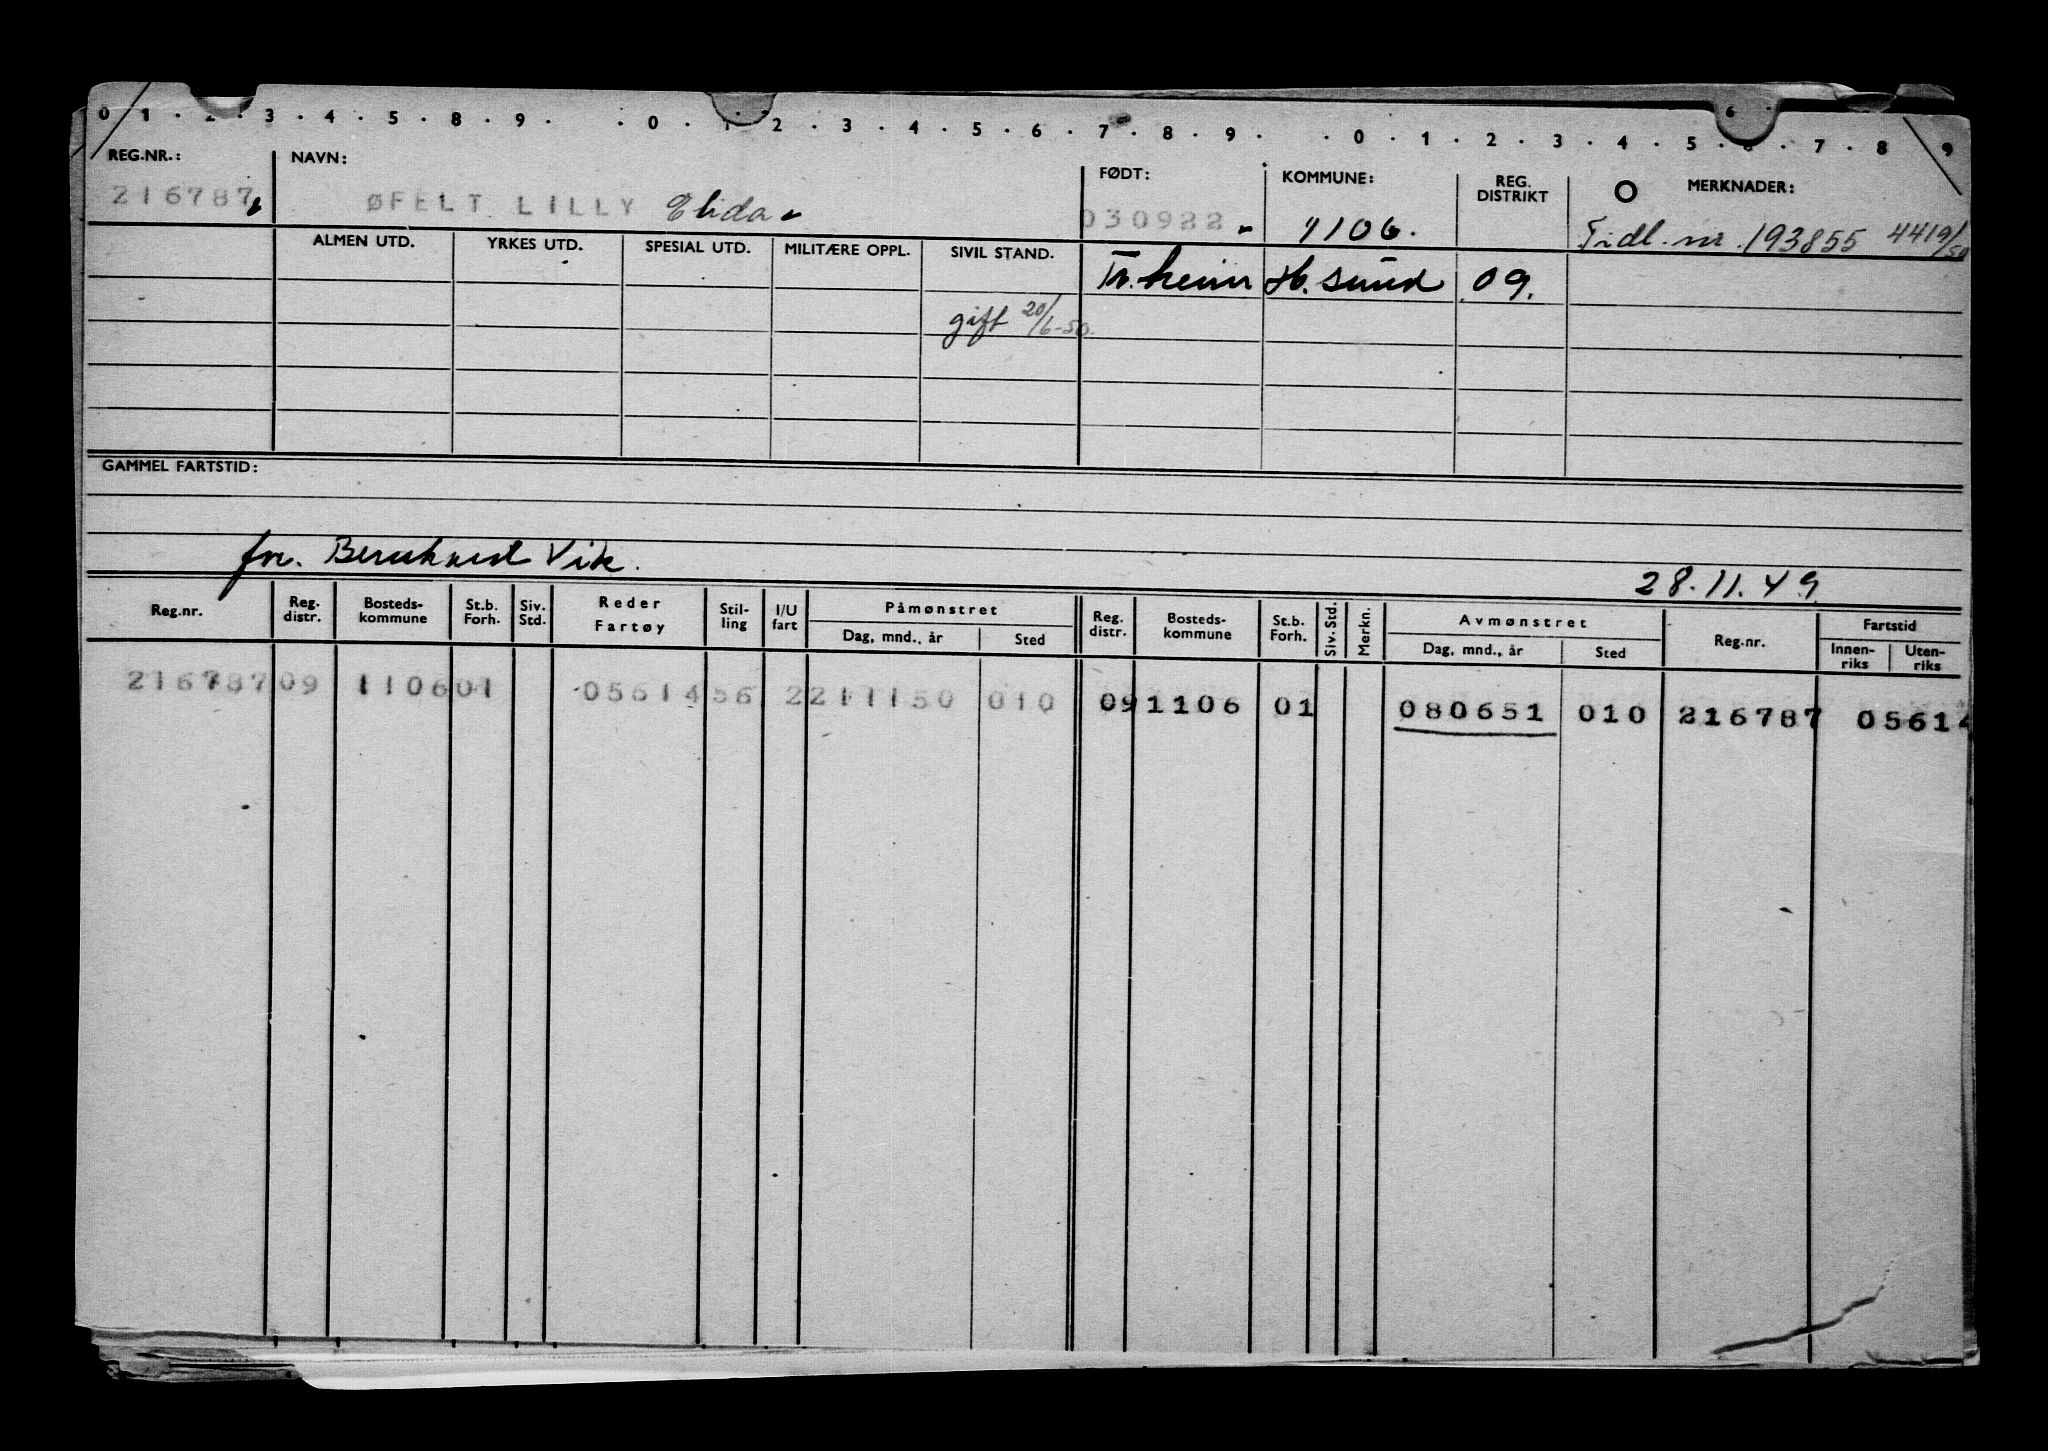 0 1 . 2 . 3 . 4 . 5 . 8 . 9 . . 0 . 1 . 2 . 3 . 4 . 5 . 6 . 7 . 8 . 9 . . 0 . 1 . 2 . 3 . 4 . 5 . 6 . 7 . 8 9
REG.NR.: NAVN: FØDT: KOMMUNE: REG. DISTRIKT MERKNADER:
216787 ØFELT LILLY Elida 030922 1106. Tidl. nr. 193855 4419/50
ALMEN UTD. YRKES UTD. SPESIAL UTD. MILITÆRE OPPL. SIVIL STAND.
Tr.heim H.sund 09.
gift 20/6-50.
GAMMEL FARTSTID:
fm. Bernhard Vik.
28.11.49
Reg.nr. Reg. distr. Bosteds- kommune St.b. Forh. Siv. Std. Reder Fartøy Stil- ling I/U fart Påmønstret Reg. distr. Bosteds- kommune St.b. Forh. Siv. Std. Merkn. Avmønstret Reg.nr. Fartstid
Dag, mnd., år Sted Dag, mnd., år Sted Innen- riks Uten- riks
216787 09 1106 01 05614 56 2 211150 010 09 1106 01 080651 010 216787 05614